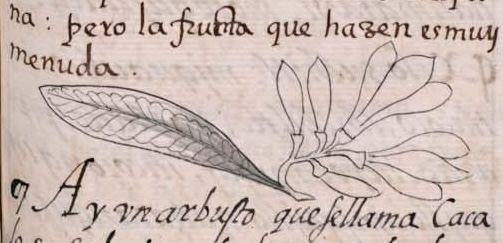 na: pero la fructa que hazen es muy
menuda.
¶ Ay vn arbusto que se llama Caca